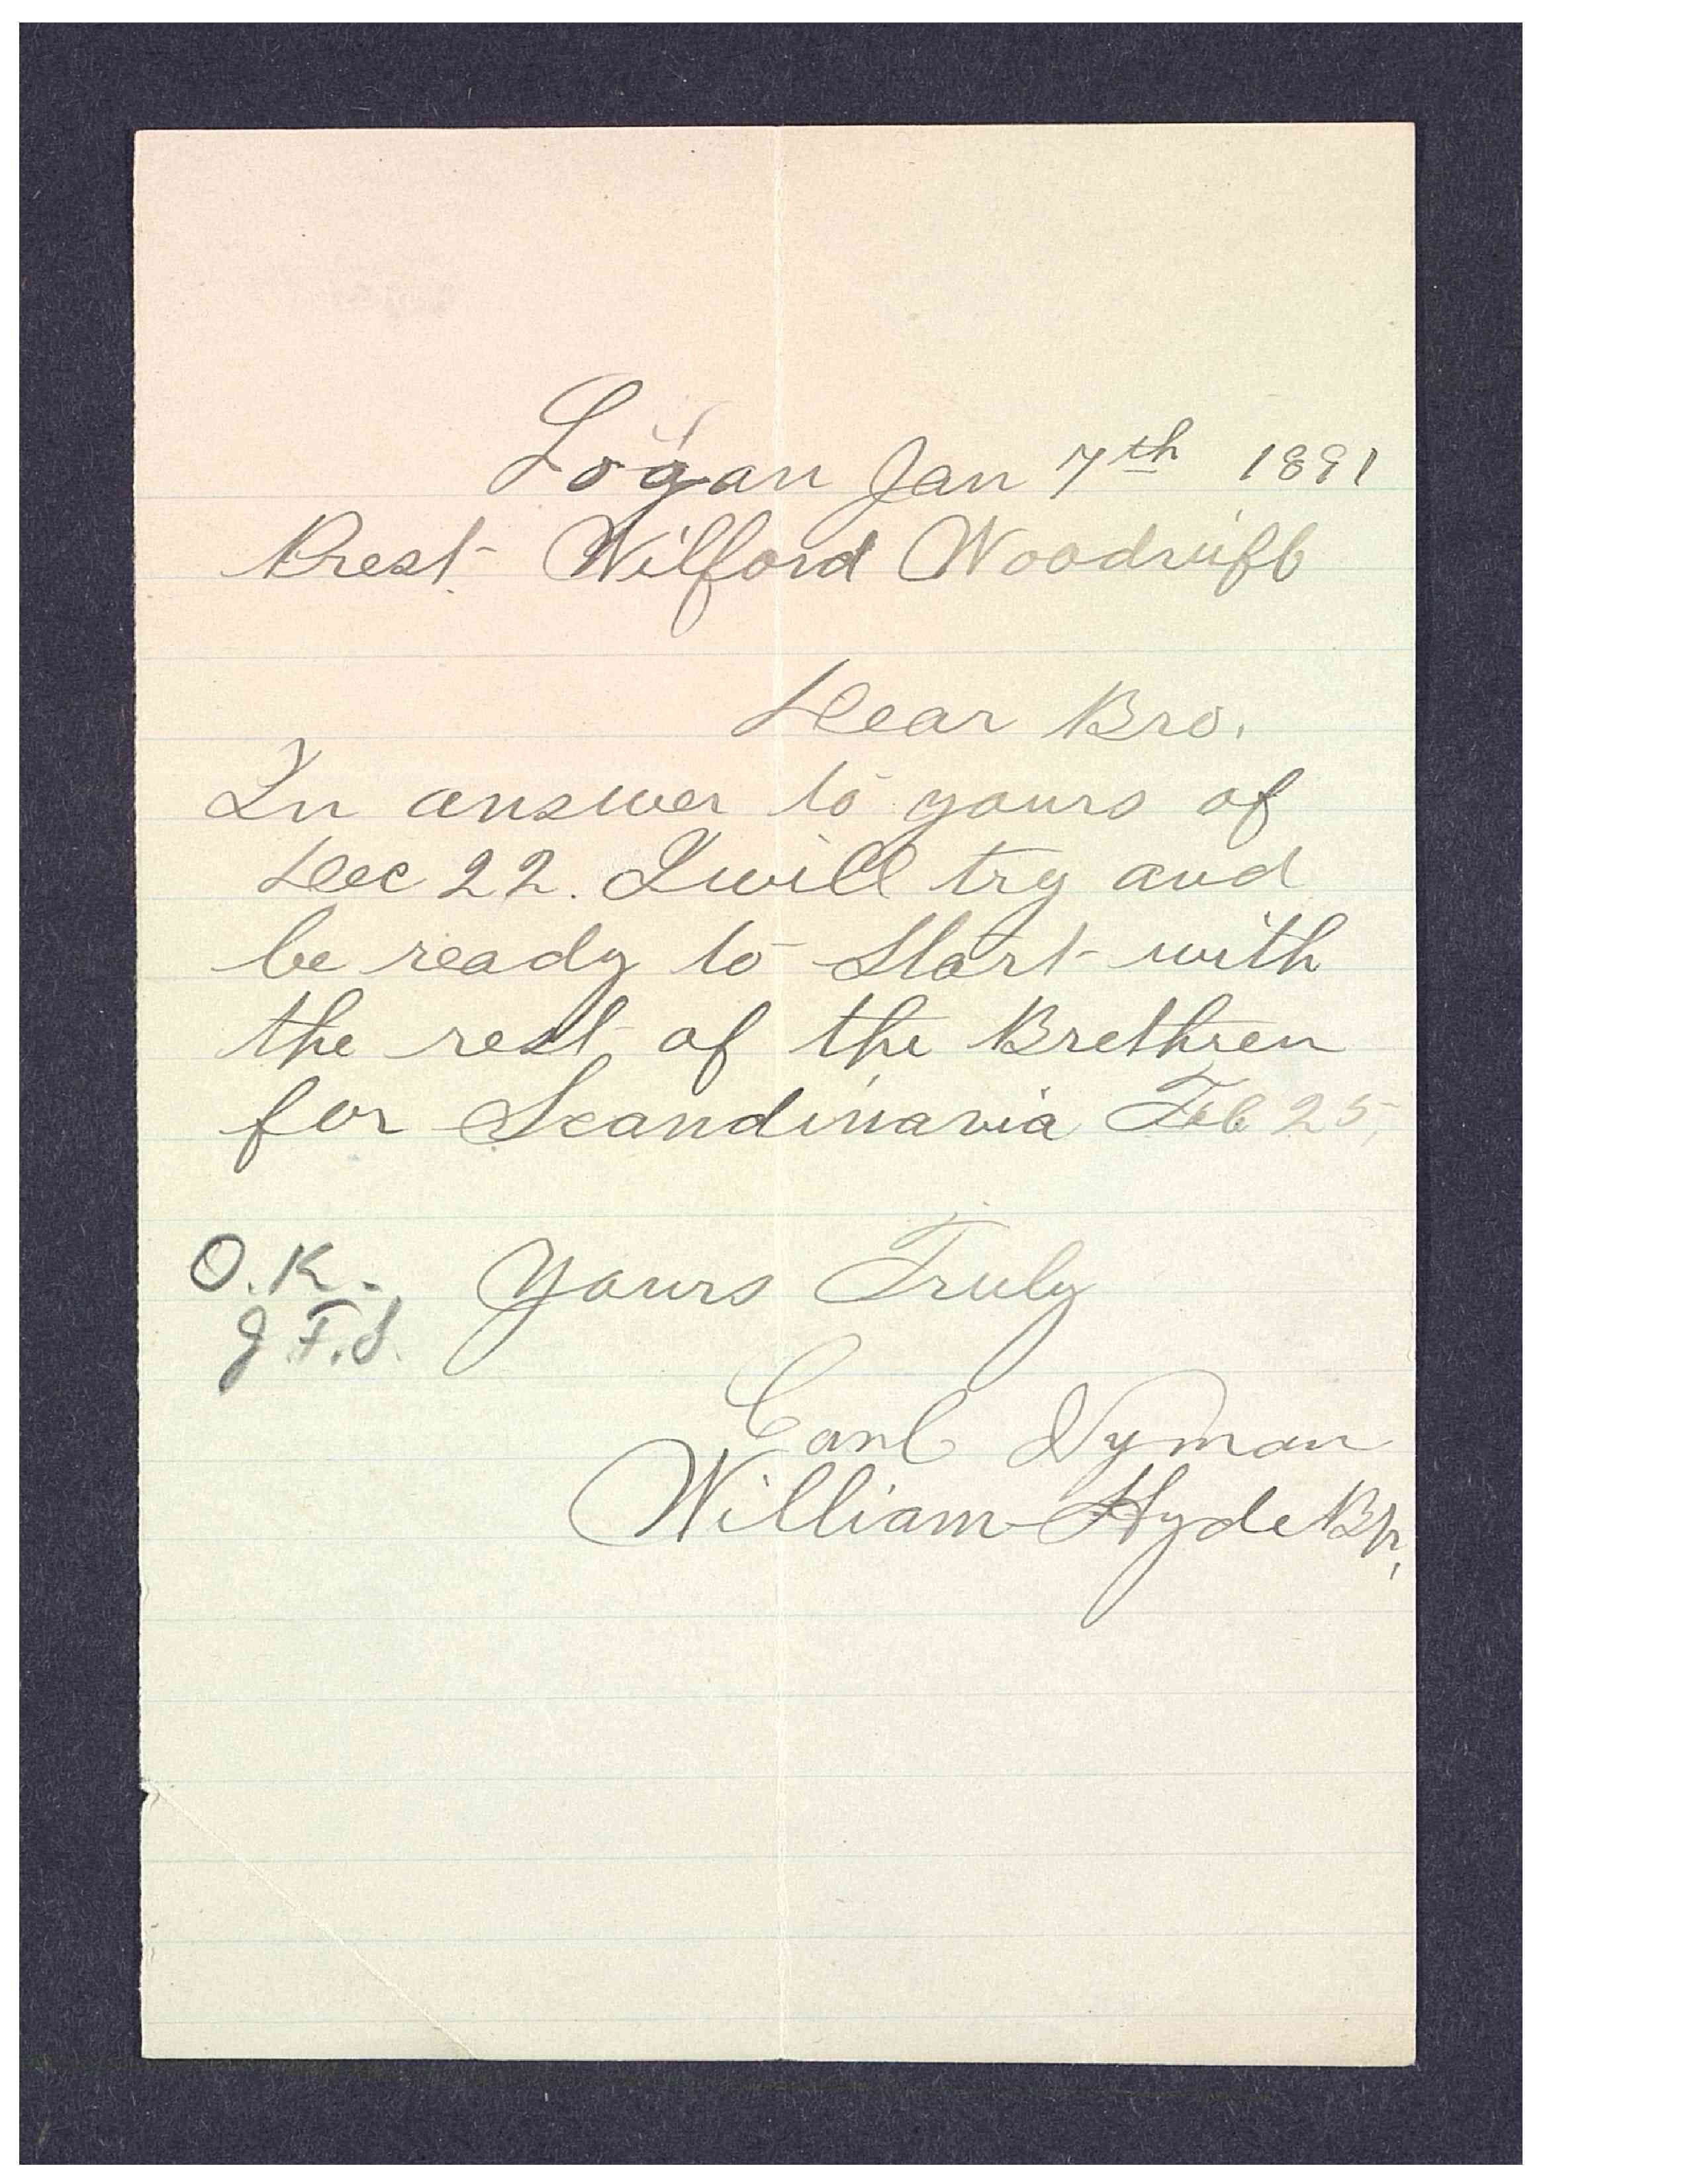 Logan Jan 7th 1891
Prest Wilford Woodruff
Dear Bro.
In answer to yours of
Dec 22. I will try and
be ready to Start with
the rest of the Brethren
for Scandinavia Feb 25,
O.K. Yours Truly
J F. S.
Carl Nyman
William Hyde Bp.